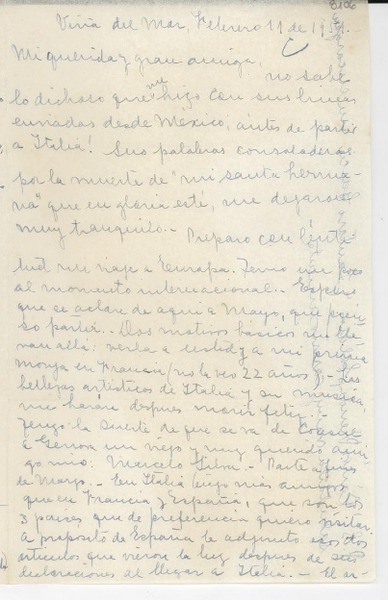 Viña del Mar, Febrero 11 de 19
Mi querida y gran amiga,
no sabe
lo dichoso que me hizo con sus líneas
enviadas desde México, antes de partir
a Italia! Sus palabras consoladoras
por la muerte de "mi santa herma-
na" que en gloria esté, me dejaron
muy tranquilo.-
Preparo con lenti-
tud mi viaje a Europa. Temo un poco
al momento internacional.- Espero
que se aclare de aquí a Mayo, que pien-
so partir.- Dos motivos básicos me lle-
van allá: verla a usted y a mi prima
monja en Francia (no la veo 22 años).- Las
bellezas artísticas de Italia y su música,
me harán después morir feliz.-
Tengo la suerte de que se va de Consul
a Génova un viejo y muy querido ami-
go mío: Marcelo Silva.- Parte a fines
de Marzo.- En Italia tengo más amigos
que en Francia y España, que son los
3 países que de preferencia quiero visitar.
A propósito de España le adjunto esos dos
artículos que vieron la luz después de sus
declaraciones al llegar a Italia.- El ar-